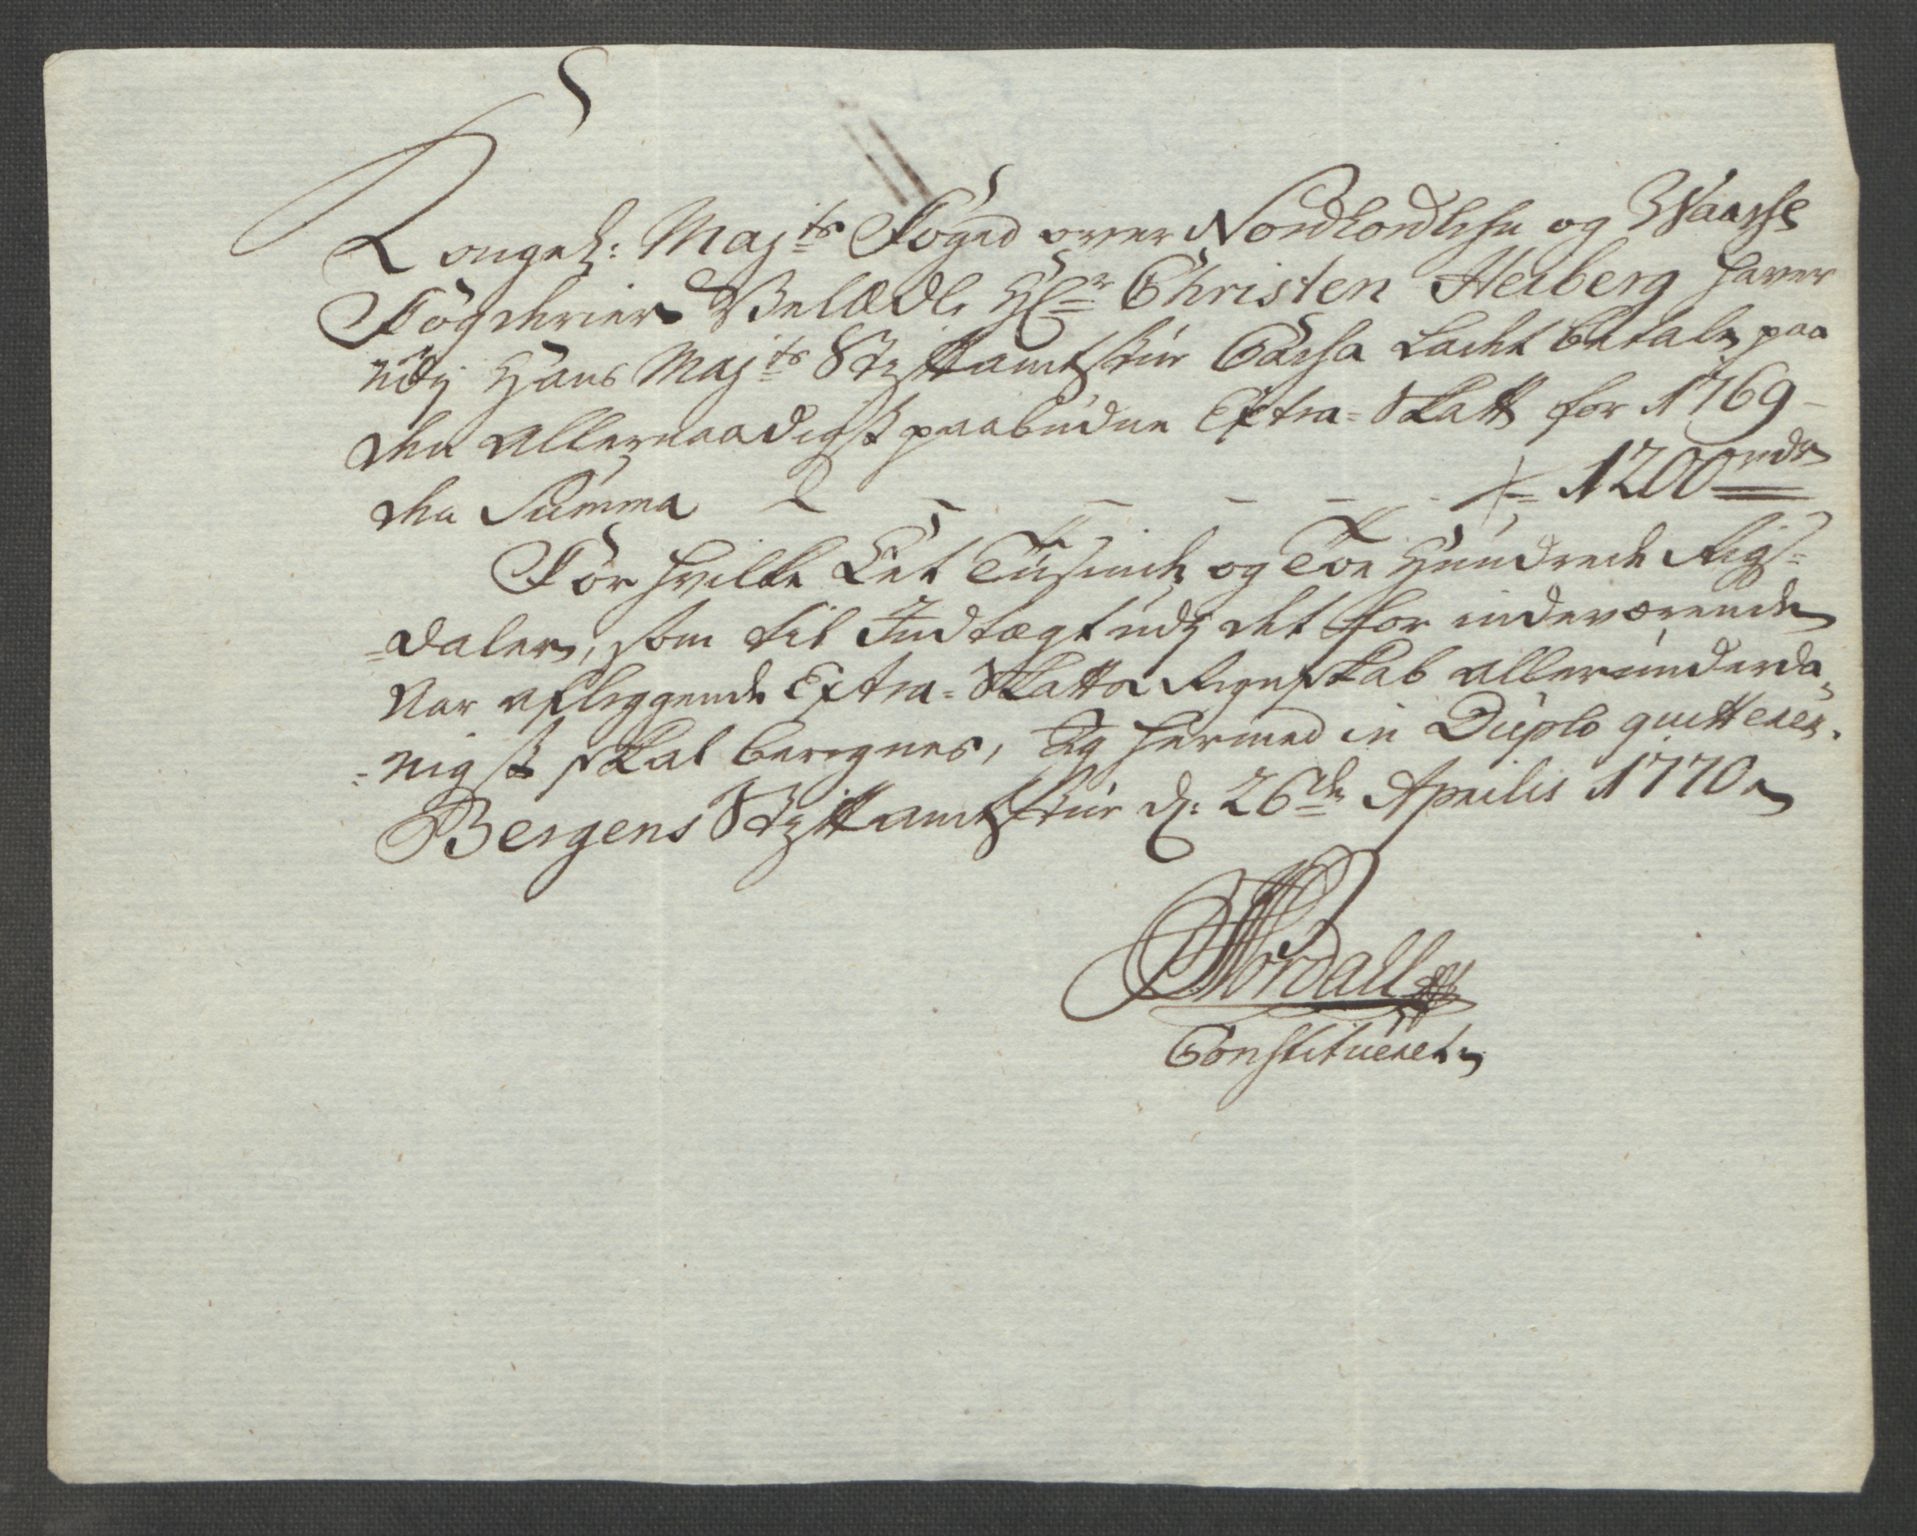 Kongel: Maj:ts Foged over Nordhordlehn og Waasse
Fogderier Velædl. Hr: Christen Heiberg haver
udj Hans Maj:ts Stiftamtstue Cassa ladet betale, paa
den allernaadigst paabudne Extra-Skatt for 1769
den Summa - - - - - 1200 rdr
For hvilke Eet Tusinde og Toe Hundrede Rigs=
=daler, som til Indtægt udj det for indeværende
Aar aflæggende Extra-Skatts Regnskab allerunderda=
=nigst skal beregnes, Jeg hermed in Duplo qvitterer.
Bergens Stiftamtstue d: 26de Aprilis 1770
Hordall
Constitueret